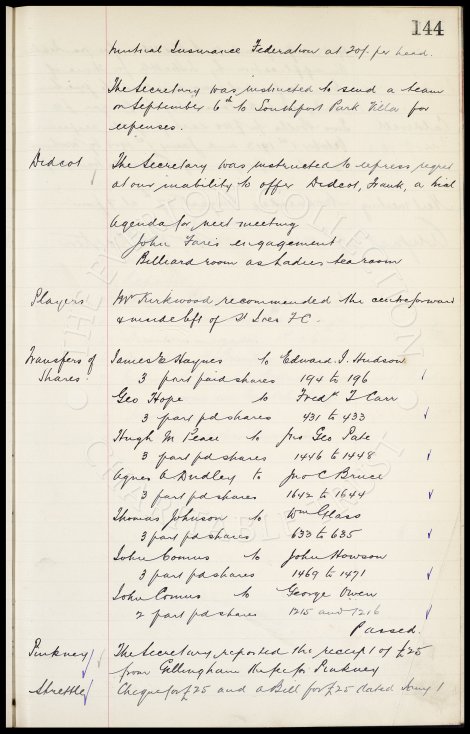 144
Mutual Insurance Federation at 20/- per head.
The Secretary was instructed to send a team
on September 6th to Southport Park Villa for
expenses.
Didcot The Secretary was instructed to express regret
at our inability to offer Didcot, Frank, a trial
Agenda for next meeting
John Fare's engagement
Billiard room as Ladies tea room
Players Mr Kirkwood recommended the centre forward
& inside left of St Ives F C.
Transfers of James E Haynes to Edward J. Hudson
Shares. 3 part paid shares 194 to 196
Geo Hope to Fredk T Carr
3 part pd shares 431 to 433
Hugh M Peace to Jno Geo Pate
3 part pd shares 1446 to 1448
Agnes A Dudley to Jno C Bruce
3 part pd shares 1642 to 1644
Thomas Johnson to Wm Glass
3 part pd shares 633 to 635
John Comus to John Howson
3 part pd shares 1469 to 1471
John Comus to George Owen
2 part pd shares 1215 and 1216
Passed.
Pinkney The Secretary reported the receipt of £25
from Gillingham the fee for Pinkney
Shrettle Cheque for £25 and a Bill for £25 dated Jany 1